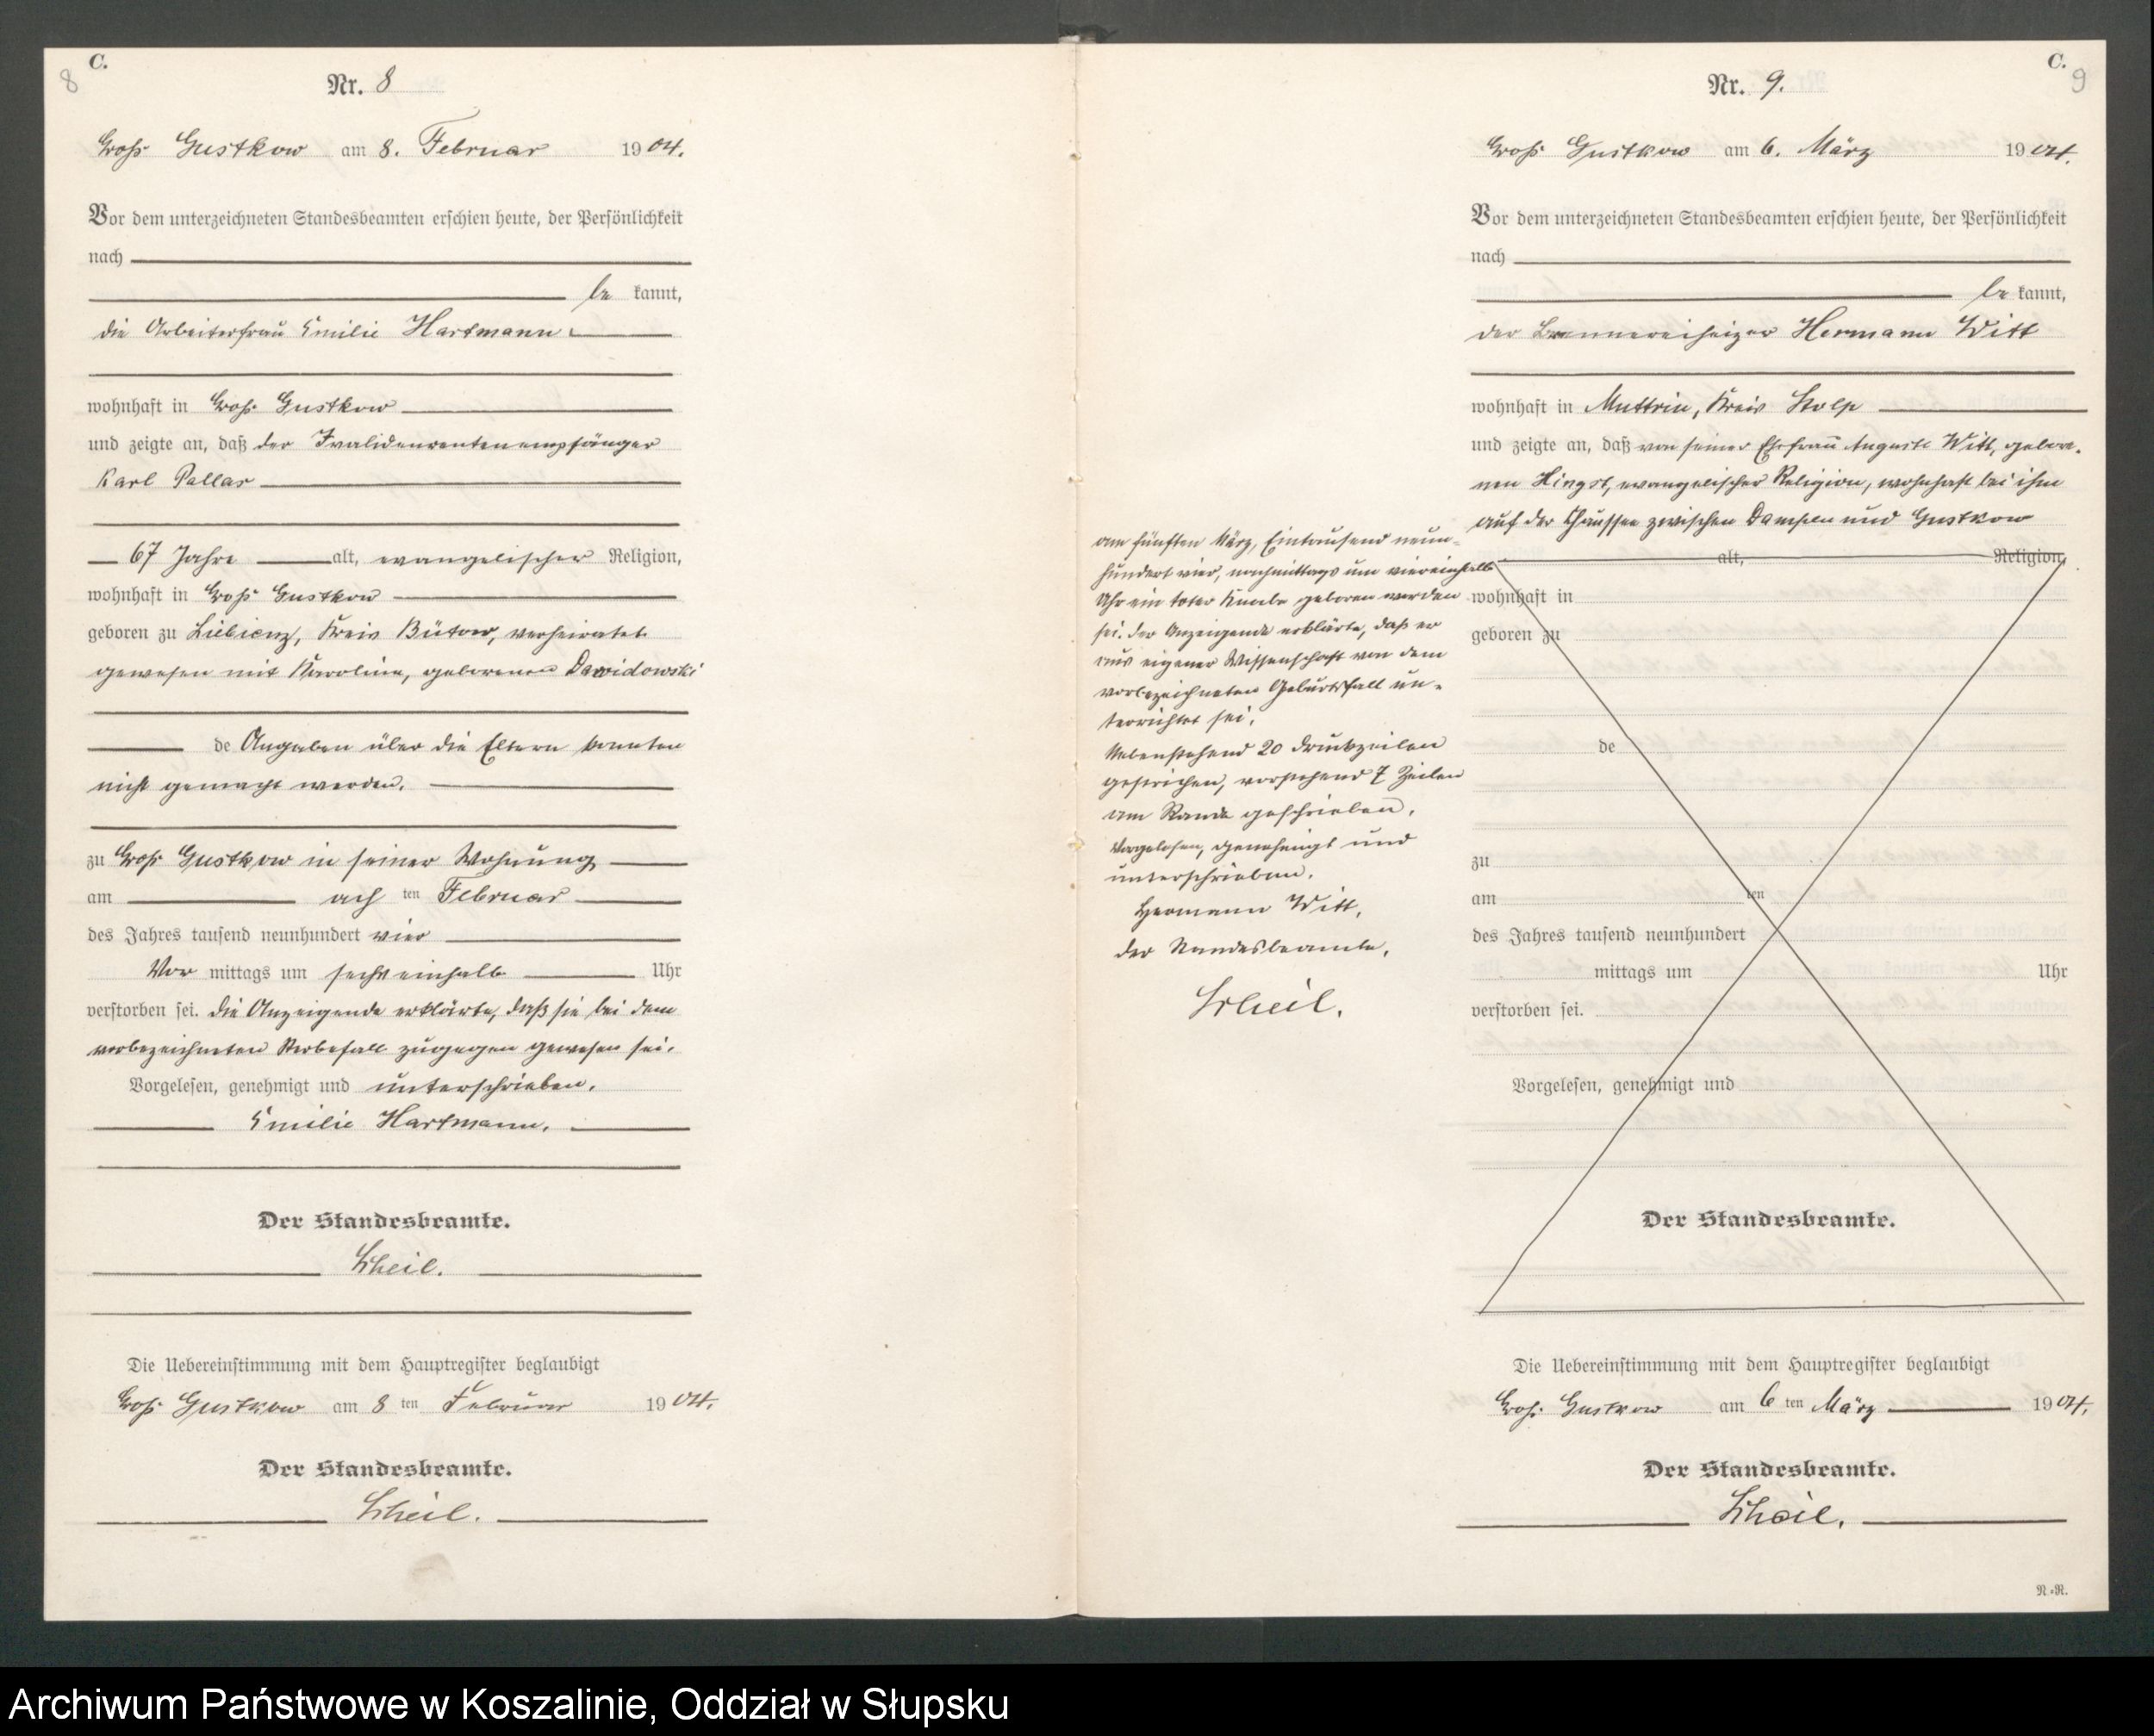 C.
8
Nr. 8
Groß Gustkow am 8. Februar 1904.
Vor dem unterzeichneten Standesbeamten erschien heute, der Persönlichkeit
nach
be kannt,
die Arbeiterfrau Emilie Hartmann
wohnhaft in Groß Gustkow
und zeigte an, daß der Invalidenrentenempfänger
Karl Pallas
67 Jahre alt, evangelischer Religion,
wohnhaft in Groß Gustkow
geboren zu Liebienz, Kreis Bütow, verheiratet
gewesen mit Karoline, geborenen Dawidowski
de Angaben über die Eltern konnten
nicht gemacht werden.
zu Groß Gustkow in seiner Wohnung
am ach ten Februar
des Jahres tausend neunhundert vier
Vor mittags um sechseinhalb Uhr
verstorben sei. Die Anzeigende erklärte, daß sie bei dem
vorbezeichneten Sterbefall zugegen gewesen sei.
Vorgelesen, genehmigt und unterschrieben.
Emilie Hartmann.
Der Standesbeamte.
Scheil.
Die Uebereinstimmung mit dem Hauptregister beglaubigt
Groß Gustkow am 8 ten Februar 1904.
Der Standesbeamte.
Scheil.
C.
9
Nr. 9.
Groß Gustkow am 6. März 1904.
Vor dem unterzeichneten Standesbeamten erschien heute, der Persönlichkeit
nach
be kannt,
der Brennereiheizer Hermann Witt
wohnhaft in Muttrin, Kreis Stolp
und zeigte an, daß von seiner Ehefrau Auguste Witt, gebore-
nen Hingst, evangelischer Religion, wohnhaft bei ihm
auf der Chaussee zwischen Dampen und Gustkow
am fünften März, Eintausend neun-
hundert vier, nachmittags um viereinhalb
Uhr ein toter Knabe geboren worden
sei. Der Anzeigende erklärte, daß er
aus eigener Wissenschaft von dem
vorbezeichneten Geburtsfall un-
terrichtet sei.
Nebenstehend 20 Druckzeilen
gestrichen, vorstehend 7 Zeilen
am Rande geschrieben.
Vorgelesen, genehmigt und
unterschrieben.
Hermann Witt.
Der Standesbeamte.
Scheil.
alt, Religion,
wohnhaft in
geboren zu
de
zu
am ten
des Jahres tausend neunhundert
mittags um Uhr
verstorben sei.
Vorgelesen, genehmigt und
Der Standesbeamte.
Die Uebereinstimmung mit dem Hauptregister beglaubigt
Groß Gustkow am 6 ten März 1904.
Der Standesbeamte.
Scheil.
N.=R.
Archiwum Państwowe w Koszalinie, Oddział w Słupsku